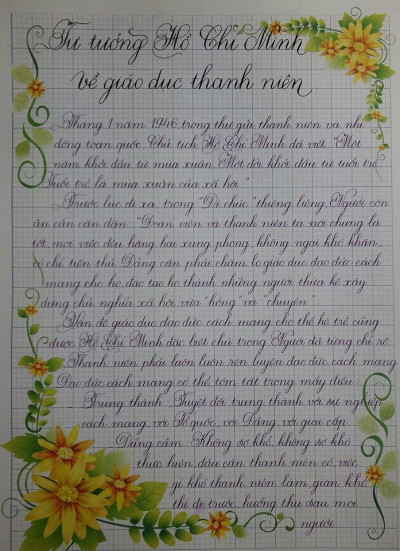 Tư tưởng Hồ Chí Minh
về giáo dục thanh niên
Tháng 1 năm 1946, trong thư gửi thanh niên và nhi
đồng toàn quốc, Chủ tịch Hồ Chí Minh đã viết "Một
năm khởi đầu từ mùa xuân. Một đời khởi đầu từ tuổi trẻ.
Tuổi trẻ là mùa xuân của xã hội."
Trước lúc đi xa, trong "Di chúc" thiêng liêng, Người còn
ân cần căn dặn: "Đoàn viên và thanh niên ta nói chung là
tốt, mọi việc đều hăng hái xung phong, không ngại khó khăn,
có chí tiến thủ. Đảng cần phải chăm lo giáo dục đạo đức cách
mạng cho họ, đào tạo họ thành những người thừa kế xây
dựng chủ nghĩa xã hội vừa "hồng" và "chuyên"
Vấn đề giáo dục đạo đức cách mạng cho thế hệ trẻ cũng
được Hồ Chí Minh đặc biệt chú trọng. Người đã từng chỉ rõ:
Thanh niên phải luôn luôn rèn luyện đạo đức cách mạng
Đạo đức cách mạng có thể tóm tắt trong mấy điều:
Trung thành: Tuyệt đối trung thành với sự nghiệp
cách mạng, với Tổ quốc, với Đảng, với giai cấp.
Dũng cảm: Không sợ khổ, không sợ khó
thực hiện, đâu cần thanh niên có, việc
gì khó thanh niên làm, gian khổ
thì đi trước, hưởng thụ sau mọi
người.